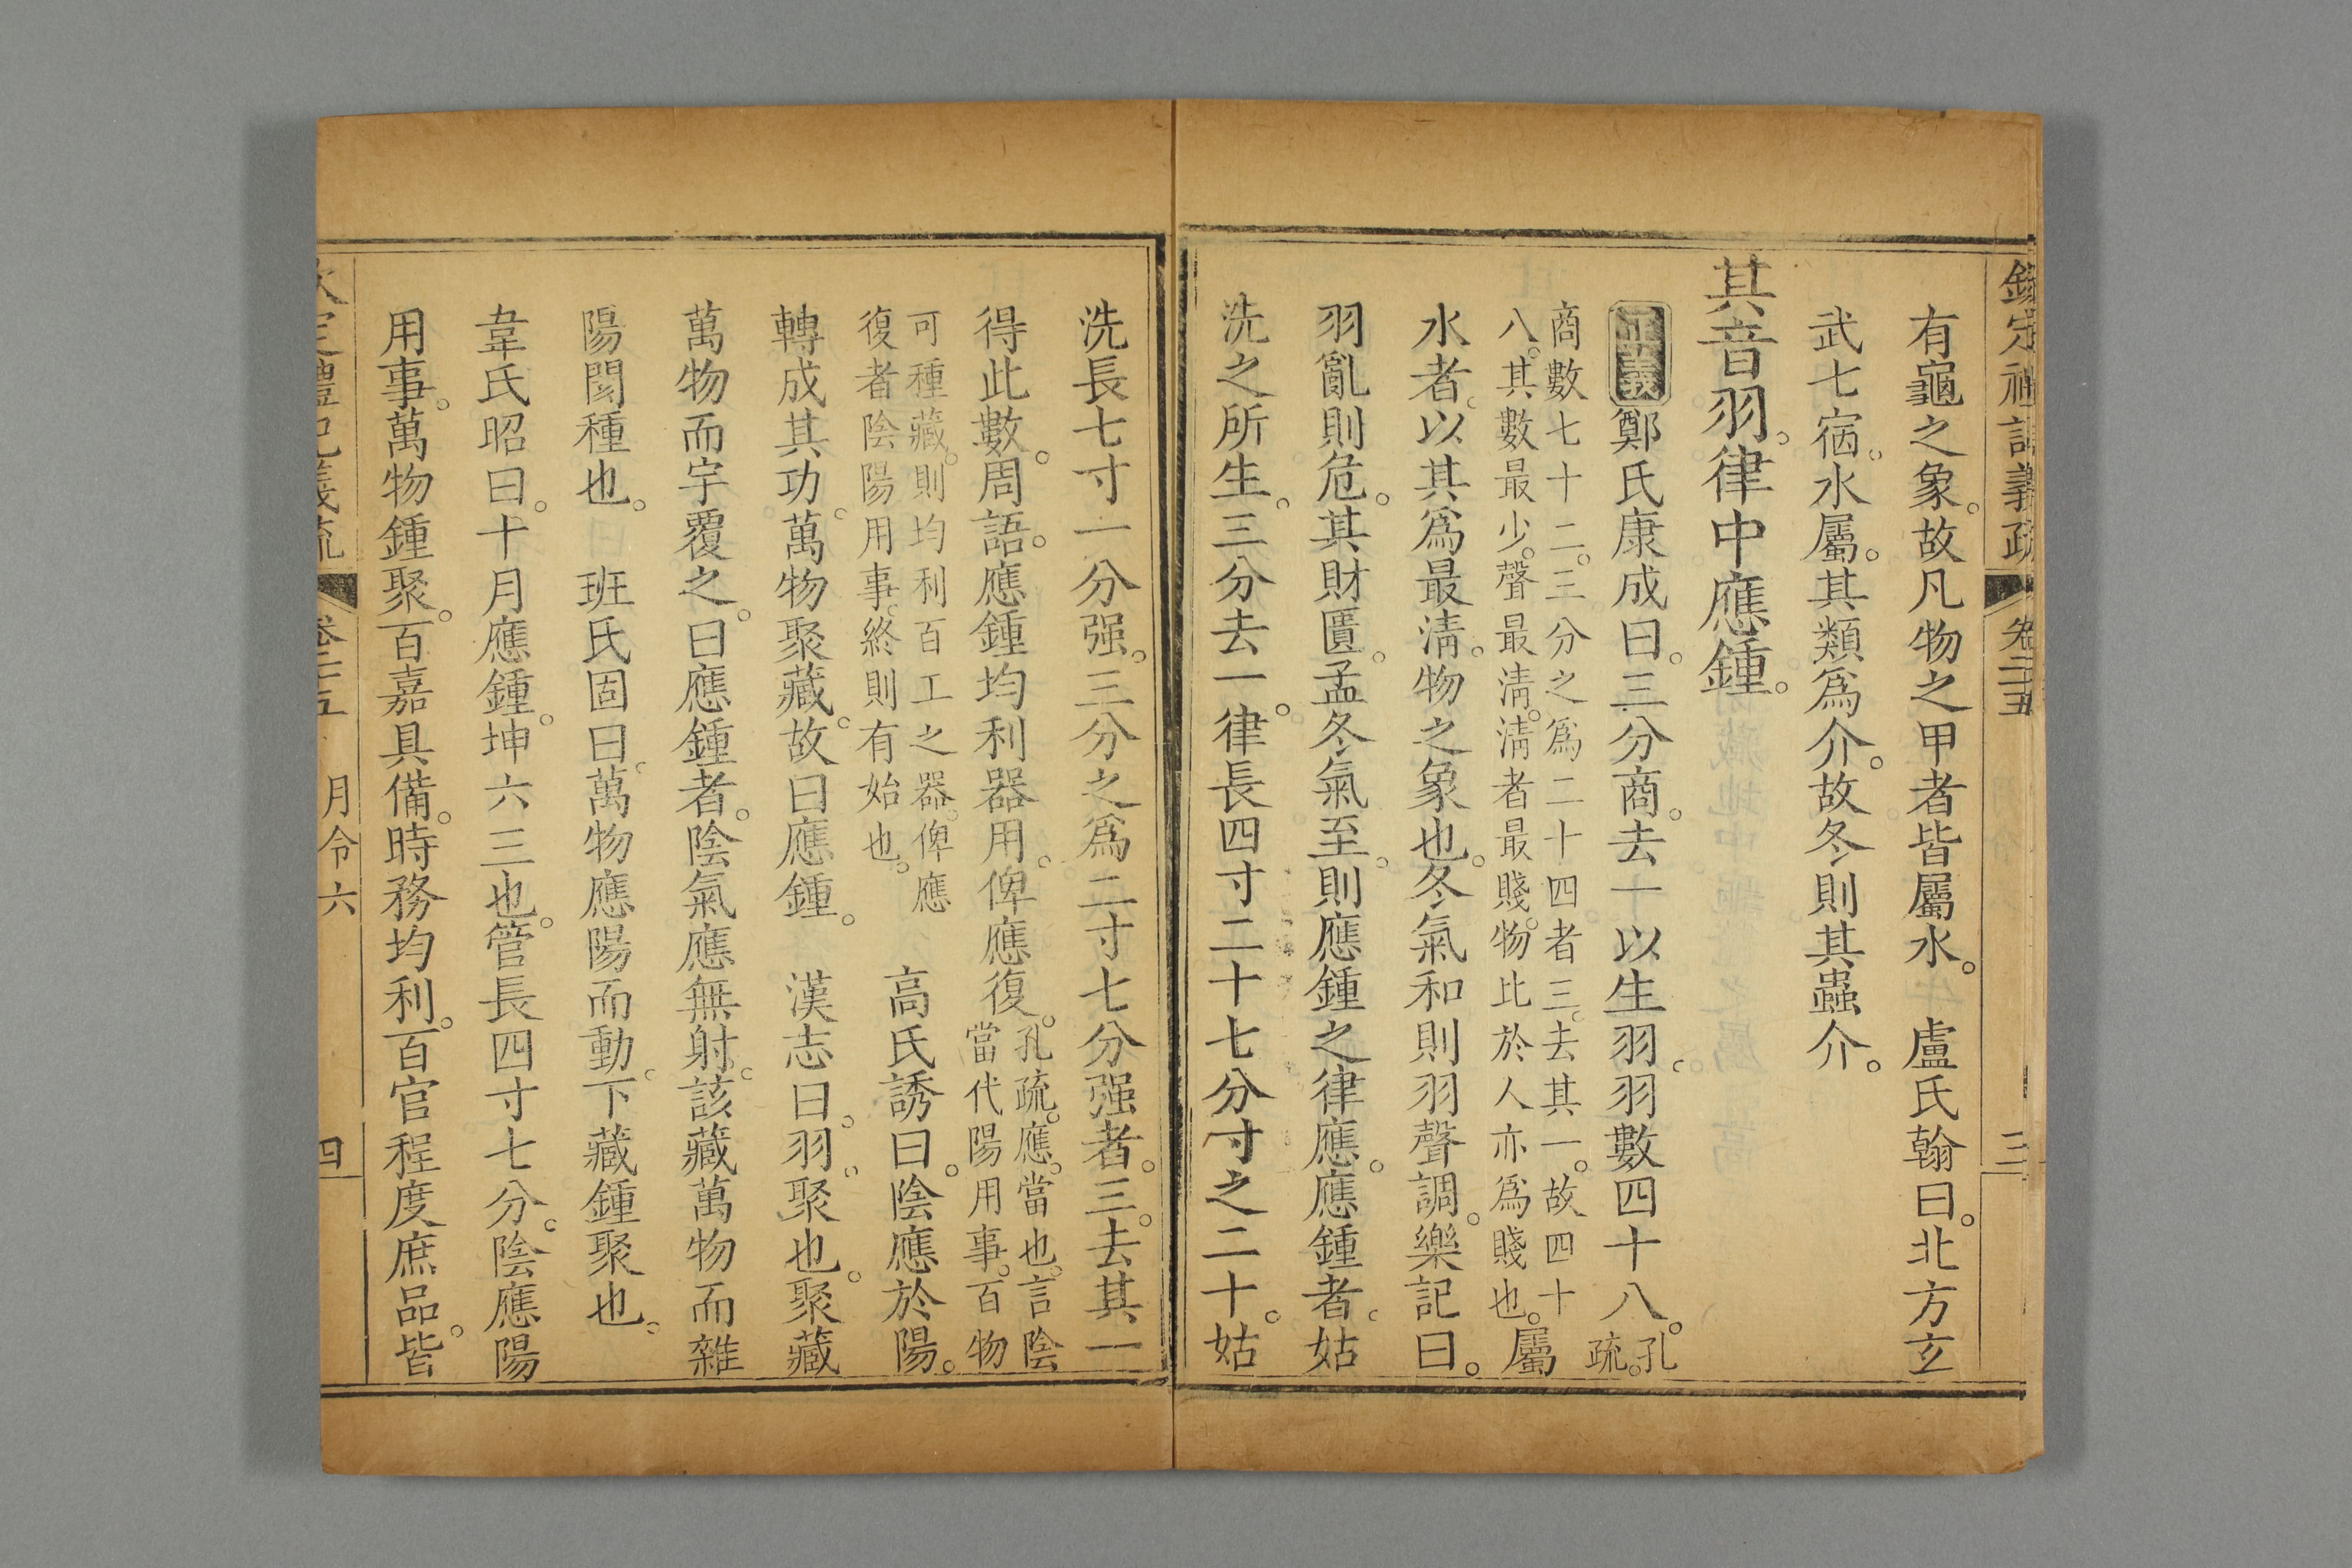 欽定禮記義疏 卷二十五 三
有龜之象。故凡物之甲者皆屬水。 盧氏翰曰。北方玄
武七宿。水屬。其類爲介。故冬則其蟲介。
其音羽。律中應鍾。
正義鄭氏康成曰。三分商。去一以生羽。羽數四十八。孔疏。
商數七十二。三分之爲二十四者三。去其一。故四十
八。其數最少。聲最淸。淸者最賤。物比於人亦爲賤也。屬
水者。以其爲最淸。物之象也。冬氣和則羽聲調。樂記曰。
羽亂則危。其財匱。孟冬氣至。則應鍾之律應。應鍾者。姑
洗之所生。三分去一。律長四寸二十七分寸之二十。姑
洗長七寸一分强。三分之爲二寸七分强者。三。去其一
得此數。周語。應鍾均利器用。俾應復。孔疏。應。當也。言陰
當代陽用事。百物
可種藏。則均利百工之器。俾應
復者陰陽用事。終則有始也。 高氏誘曰。陰應於陽。
轉成其功。萬物聚藏。故曰應鍾。 漢志曰。羽。聚也。聚藏
萬物而宇覆之。曰應鍾者。陰氣應無射。該藏萬物而雜
陽閡種也。 班氏固曰。萬物應陽而動。下藏鍾聚也。
韋氏昭曰。十月應鍾。坤六三也。管長四寸七分。陰應陽
用事。萬物鍾聚。百嘉具備。時務均利。百官程度庶品。皆
欽定禮記義疏 卷二十五 月令六 四